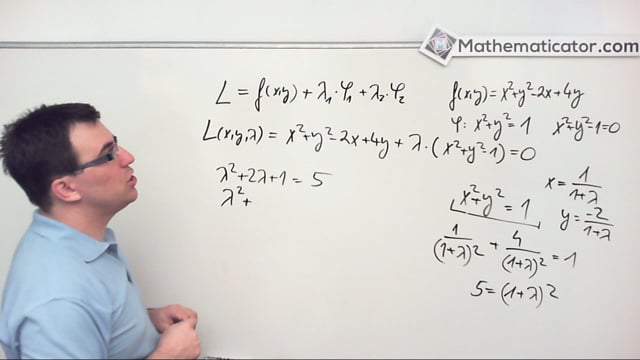 Mathematicator.com
L = f(x,y) + λ₁·φ₁ + λ₂·φ₂
f(x,y) = x²+y²-2x+4y
φ: x²+y² = 1 x²+y²-1=0
L(x,y,λ) = x²+y²-2x+4y + λ·(x²+y²-1) = 0
λ²+2λ+1 = 5
λ²+
x = 1/(1+λ)
x²+y² = 1
y = -2/(1+λ)
1/(1+λ)² + 4/(1+λ)² = 1
5 = (1+λ)²